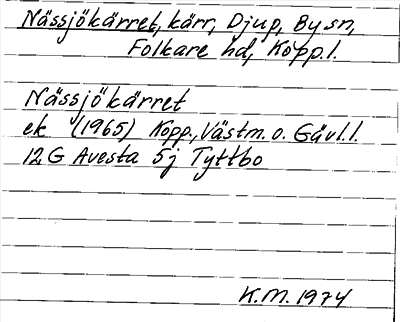 Nässjökärret, kärr, Djup, By sn,
Folkare hd, Kopp. l.
Nässjökärret
ek (1965) Kopp., Västm. o. Gävl. l.
12 G Avesta 5j Tyttbo
K.M. 1974